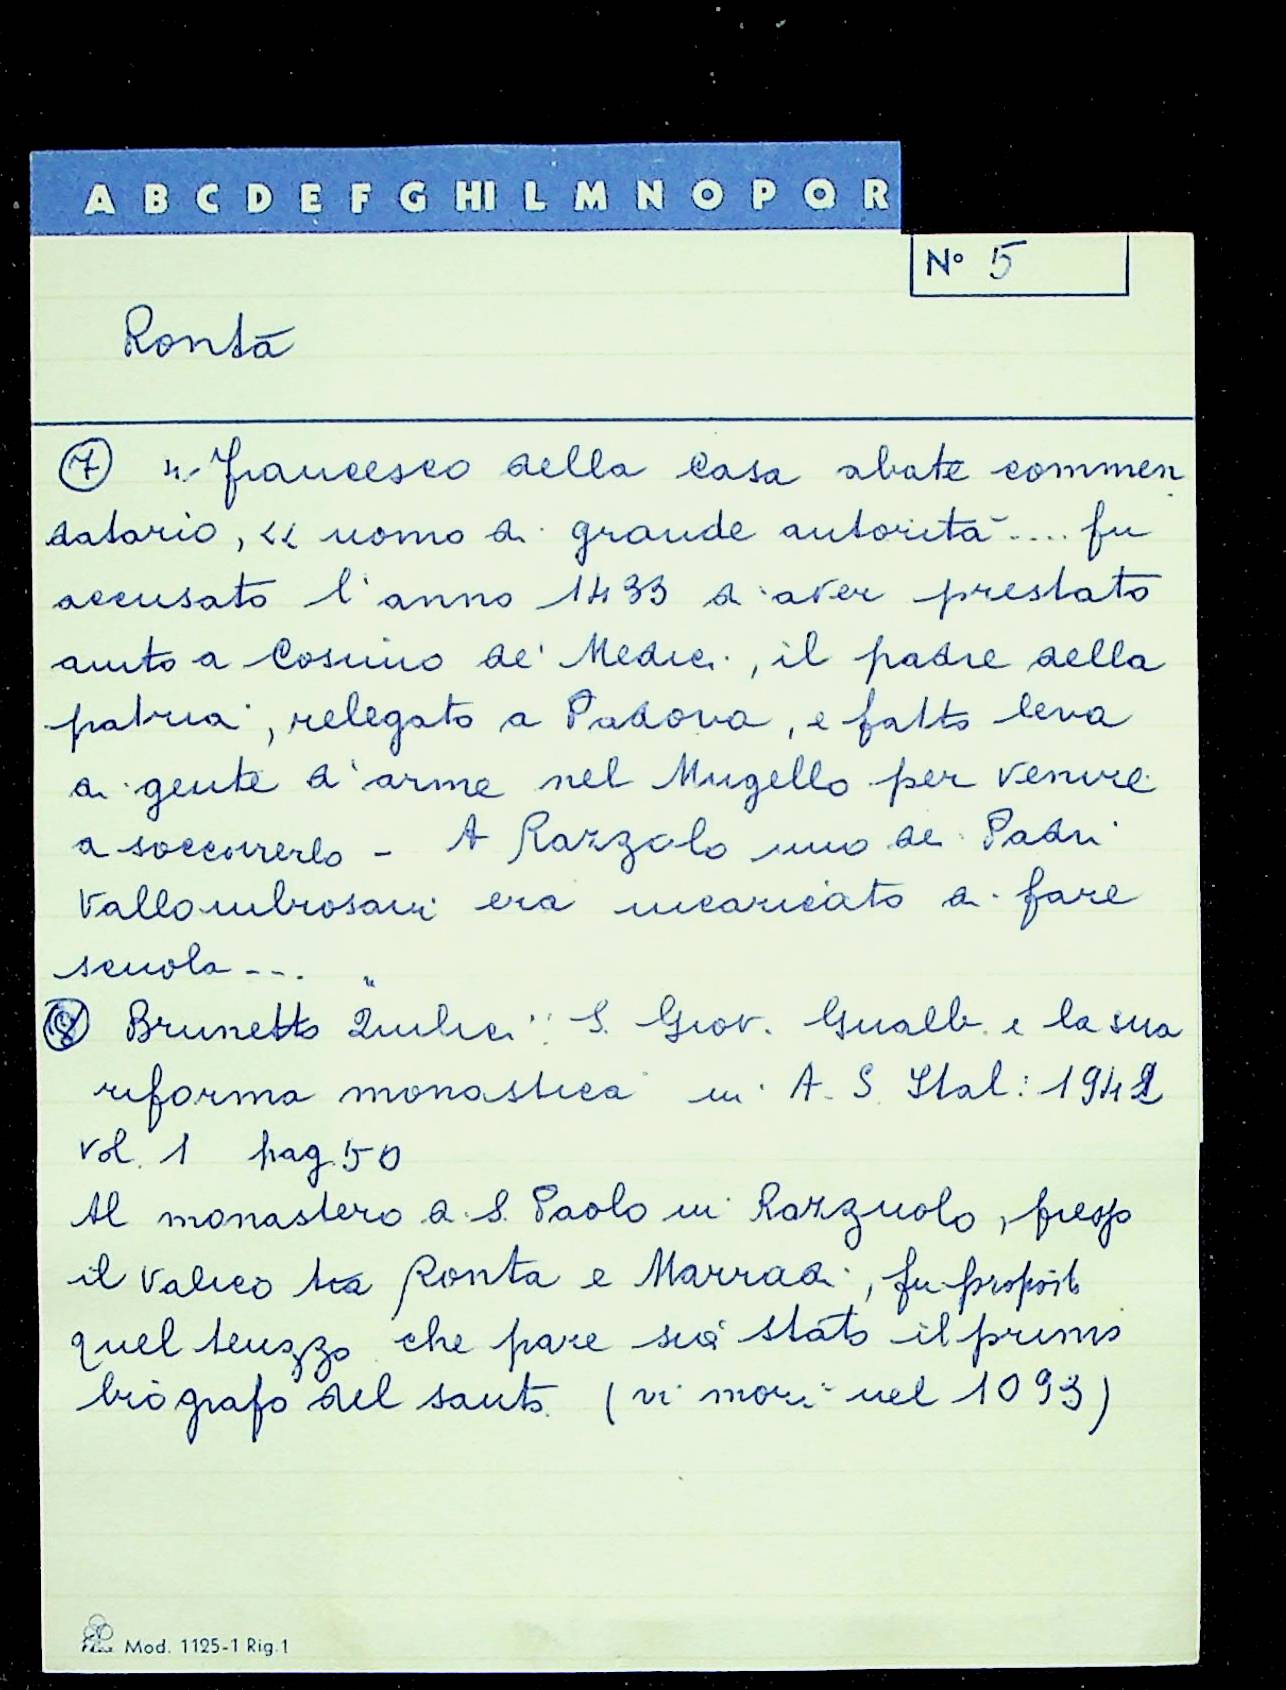 A B C D E F G HI L M N O P Q R
N° 5
Ronta
7 "Francesco della Casa abate commen
datario, << uomo di grande autorità .... fu
accusato l'anno 1433 di aver prestato
aiuto a Cosimo de' Medici, il padre della
patria, relegato a Padova, e fatto leva
di gente d'arme nel Mugello per venire
a soccorrerlo - A Razzolo uno dei Padri
Vallombrosani era incaricato di fare
scuola ... "
8 Brunetto Quilici: S. Giov. Gualb. e la sua
riforma monastica in A. S. Ital: 1942
vol. 1 pag. 50
Al monastero di S. Paolo in Razzuolo, presso
il valico tra Ronta e Marradi, fu
quel che pare sia stato il primo
biografo del santo. (vi morì nel 1093)
Mod. 1125-1 Rig. 1